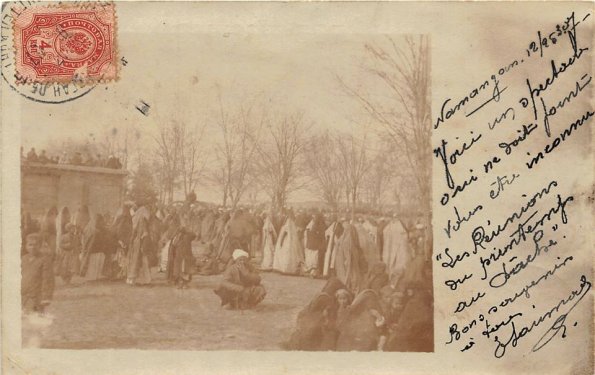 Namangan, 12/25 3 07
Voici un spectacle
qui ne doit point
vous être inconnu
"Les Réunions
du printemps
au Tâché".
Bons souvenirs
à tous.